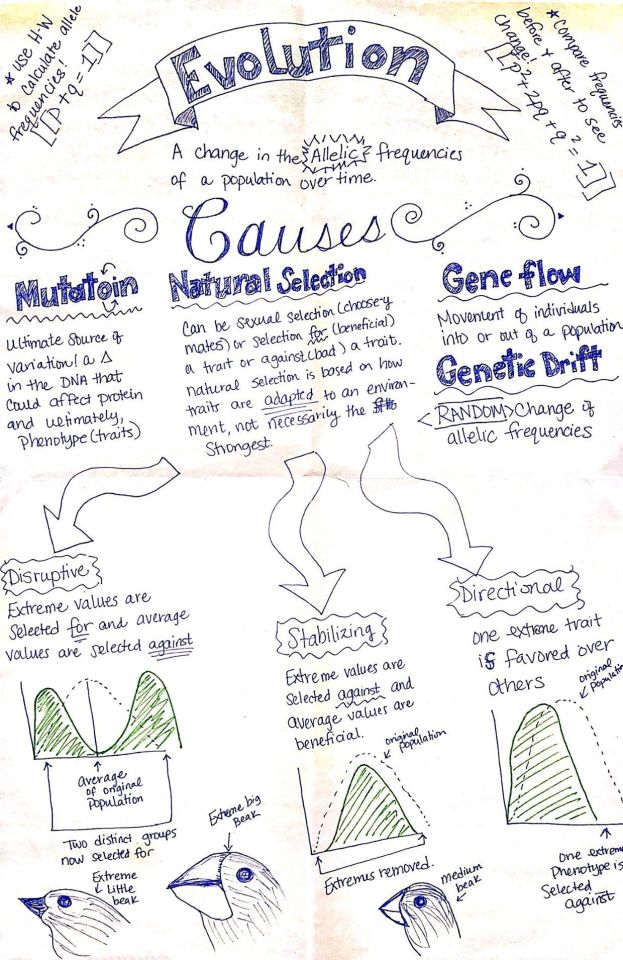 * use H-W
to calculate allele
frequencies!
[[p + q = 1]]
Evolution
* Compare frequencies
before + after to see
change!
[[p² + 2pq + q² = 1]]
A change in the Allelic frequencies
of a population over time.
Causes
Mutatoin
Ultimate source of
variation! a Δ
in the DNA that
could affect protein
and ultimately,
Phenotype (traits)
Natural Selection
Can be sexual selection (choose-y
mates) or selection for (beneficial)
a trait or against (bad) a trait.
natural selection is based on how
traits are adapted to an environ-
ment, not necessarily the
Strongest.
Gene flow
Movement of individuals
into or out of a population
Genetic Drift
<RANDOM> Change of
allelic frequencies
Disruptive
Extreme values are
selected for and average
values are selected against
Average
of original
Population
Two distinct groups
now selected for
Extreme
Little
beak
Extreme big
Beak
Stabilizing
Extreme values are
selected against and
average values are
beneficial.
original
population
Extremes removed.
medium
beak
Directional
one extreme trait
is favored over
others
original
population
One extreme
Phenotype is
Selected
against